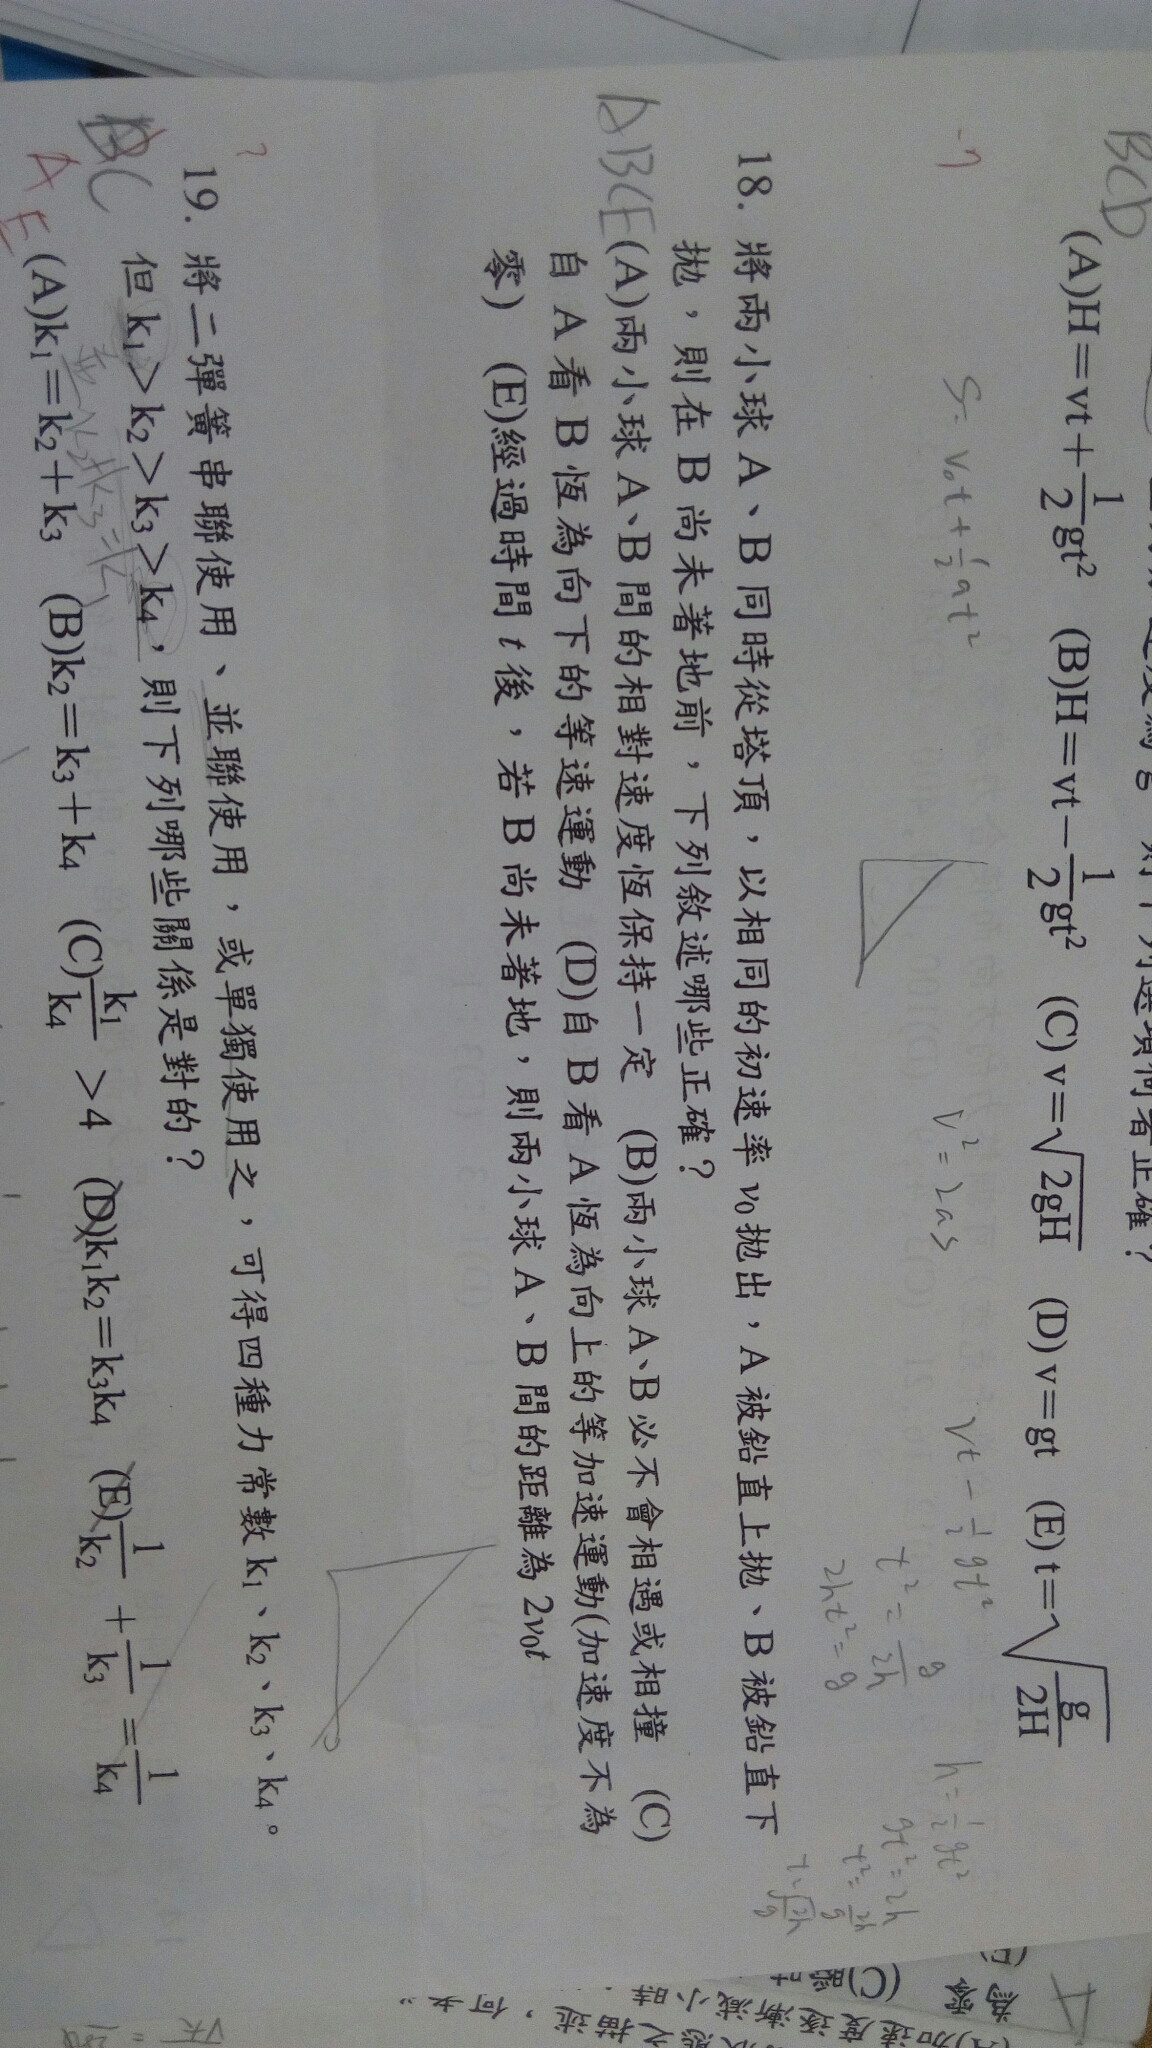 BCD
(A)H=vt+\frac{1}{2}gt² (B)H=vt−\frac{1}{2}gt² (C) v=√2gH (D) v=gt (E) t=√\frac{g}{2H}
-7
S= v₀t+\frac{1}{2}at² V²=2as Vt-\frac{1}{2}gt² h=\frac{1}{2}gt²
gt²=2h
t²=\frac{2h}{g}
2ht²=g
18. 將兩小球A、B同時從塔頂，以相同的初速率v₀拋出，A被鉛直上拋、B被鉛直下
拋，則在B尚未著地前，下列敘述哪些正確？
ABCE
(A)兩小球A、B間的相對速度恆保持一定 (B)兩小球A、B必不會相遇或相撞 (C)
自A看B恆為向下的等速運動 (D)自B看A恆為向上的等加速運動(加速度不為
零) (E)經過時間t後，若B尚未著地，則兩小球A、B間的距離為2v₀t
?
19. 將二彈簧串聯使用、並聯使用，或單獨使用之，可得四種力常數k₁、k₂、k₃、k₄。
但k₁＞k₂＞k₃＞k₄，則下列哪些關係是對的？
BC
A E
(A)k₁=k₂+k₃ (B)k₂=k₃+k₄ (C)\frac{k₁}{k₄} ＞4 (D)k₁k₂=k₃k₄ (E)\frac{1}{k₂}+\frac{1}{k₃}=\frac{1}{k₄}